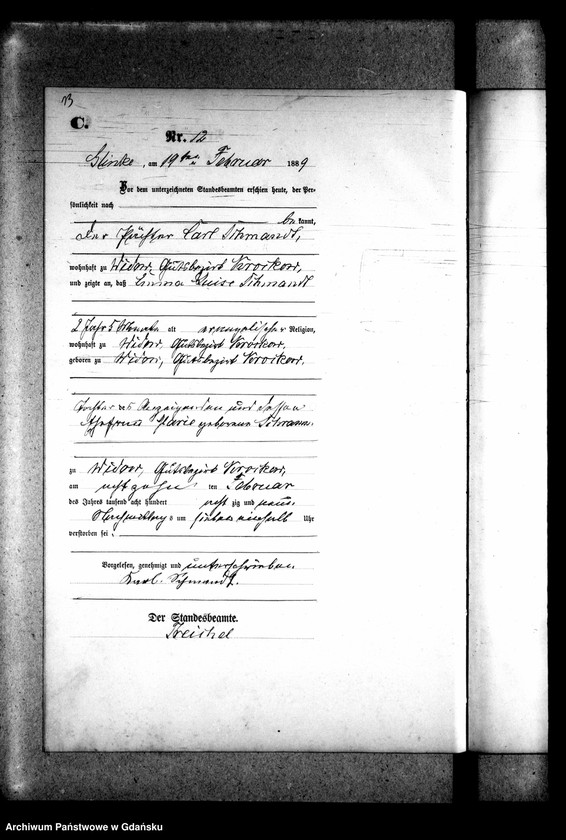 13
C.
Nr. 12
am 19ten Februar 1889
Vor dem unterzeichneten Standesbeamten erschien heute, der Per-
sönlichkeit nach
be kannt,
der Carl Schmandt,
wohnhaft zu Gutsbezirk
und zeigte an, daß Emma Luise Schmandt
2 Jahr 5 Monate alt evangelischer Religion,
wohnhaft zu Gutsbezirk
geboren zu Gutsbezirk
Tochter des Anzeigenden und dessen
Ehefrau Marie geborene
zu Gutsbezirk
am achtzehn ten Februar
des Jahres tausend acht hundert acht zig und neun
Nachmittags um einhalb Uhr
verstorben sei.
Vorgelesen, genehmigt und unterschrieben
Karl Schmandt.
Der Standesbeamte.
Treichel
Archiwum Państwowe w Gdańsku